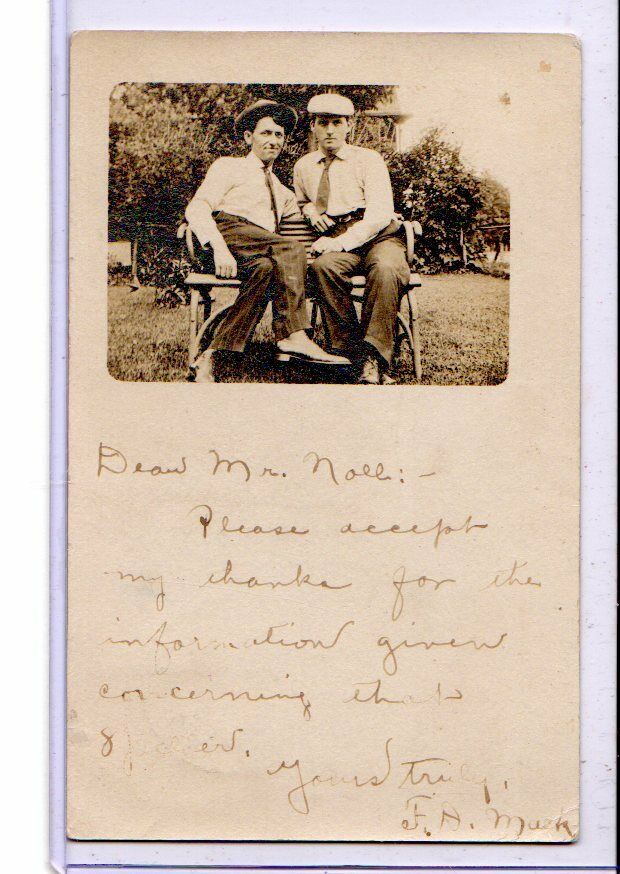 Dear Mr. Noll:-
Please accept
my thanks for the
information given
concerning that
Yours truly,
F. A.